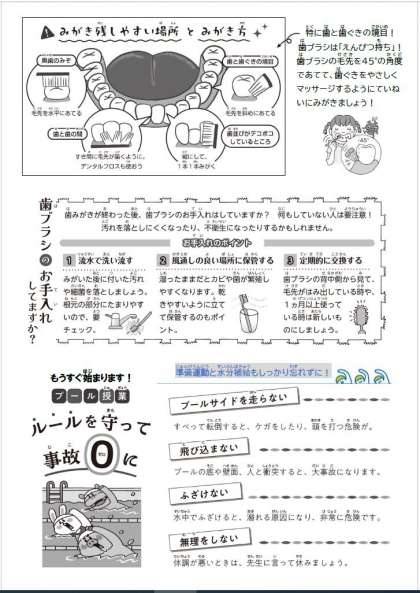 みがき残しやすい場所 と みがき方
奥歯のみぞ
毛先を水平にあてる
歯と歯ぐきの境目
毛先を斜めにあてる
歯と歯の間
すき間に毛先が届くように。
デンタルフロスも使おう
歯並びがデコボコ
しているところ
縦にして、
1本1本みがく
特に歯と歯ぐきの境目！
歯ブラシは「えんぴつ持ち」！
歯ブラシの毛先を45°の角度
であてて、歯ぐきをやさしく
マッサージするようにていね
いにみがきましょう！
45°
歯ブラシのお手入れ
してますか？
歯みがきが終わった後、歯ブラシのお手入れはしていますか？ 何もしていない人は要注意！
汚れを落としにくくなったり、不衛生になったりするかもしれません。
お手入れのポイント
1 流水で洗い流す
みがいた後に付いた汚れ
や細菌を落としましょう。
根元の部分にたまりやす
いので、要
チェック。
2 風通しの良い場所に保管する
湿ったままだとカビや菌が繁殖し
やすくなります。乾
きやすいように立て
て保管するのもポイ
ント。
3 定期的に交換する
歯ブラシの背中側から見て、
毛先がはみ出している時や、
1ヵ月以上使って
いる時は新しいも
のにしましょう。
もうすぐ始まります！
プール授業
ルールを守って
事故0に
準備運動と水分補給もしっかり忘れずに！
プールサイドを走らない
すべって転倒すると、ケガをしたり、頭を打つ危険が。
飛び込まない
プールの底や壁面、人と衝突すると、大事故になります。
ふざけない
水中でふざけると、溺れる原因になり、非常に危険です。
無理をしない
体調が悪いときは、先生に言って休みましょう。